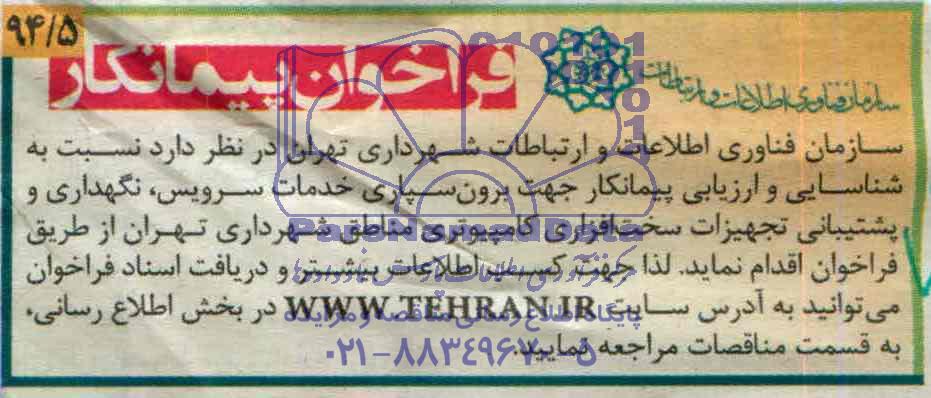 ۹۴/۵
فراخوان پیمانکار
سازمان فناوری اطلاعات و ارتباطات
سازمان فناوری اطلاعات و ارتباطات شهرداری تهران در نظر دارد نسبت به
شناسایی و ارزیابی پیمانکار جهت برون‌سپاری خدمات سرویس، نگهداری و
پشتیبانی تجهیزات سخت‌افزاری کامپیوتری مناطق شهرداری تهران از طریق
فراخوان اقدام نماید. لذا جهت کسب اطلاعات بیشتر و دریافت اسناد فراخوان
می‌توانید به آدرس سایت WWW.TEHRAN.IR در بخش اطلاع رسانی،
به قسمت مناقصات مراجعه نمایید.
پایگاه اطلاع رسانی مناقصه و مزایده
۰۲۱-۸۸۳۴۹۶۷۰-۵